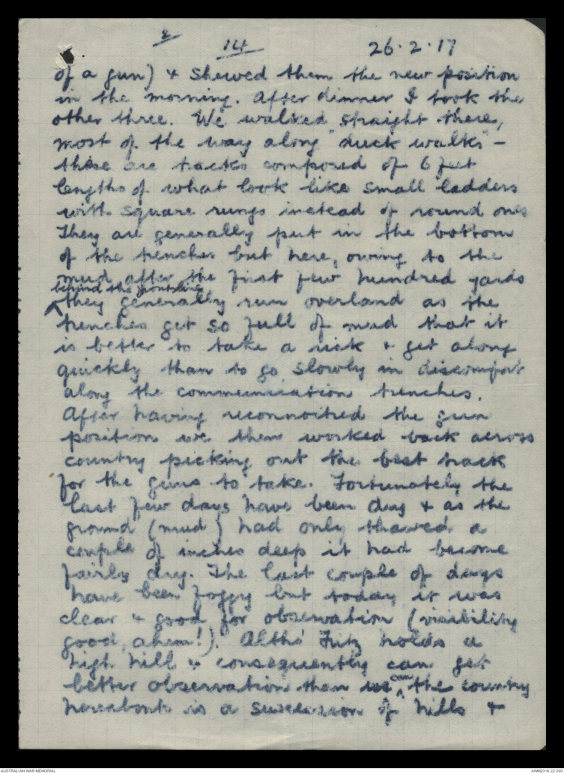 2
14 26.2.17
of a gun) & shewed them the new position
in the morning. After dinner I took the
other three. We walked straight there,
most of the way along "duck walks" -
these are tracks composed of 6 feet
lengths of what look like small ladders
with square rungs instead of round ones
They are generally put in the bottom
of the trenches but here, owing to the
mud after the first few hundred yards
behind the frontline
they generally run overland as the
trenches get so full of mud that it
is better to take a risk & get along
quickly than to go slowly in discomfort
along the communication trenches.
After having reconnoitred the gun
position we then worked back across
country picking out the best track
for the guns to take. Fortunately the
last few days have been dry & as the
ground (mud) had only thawed a
couple of inches deep it had become
fairly dry. The last couple of days
have been foggy but today it was
clear & good for observation (visibility
good, ahem!). Altho' Fritz holds a
high hill & consequently can get
better observation than we can, the country
hereabouts is a succession of hills &
AUSTRALIAN WAR MEMORIAL